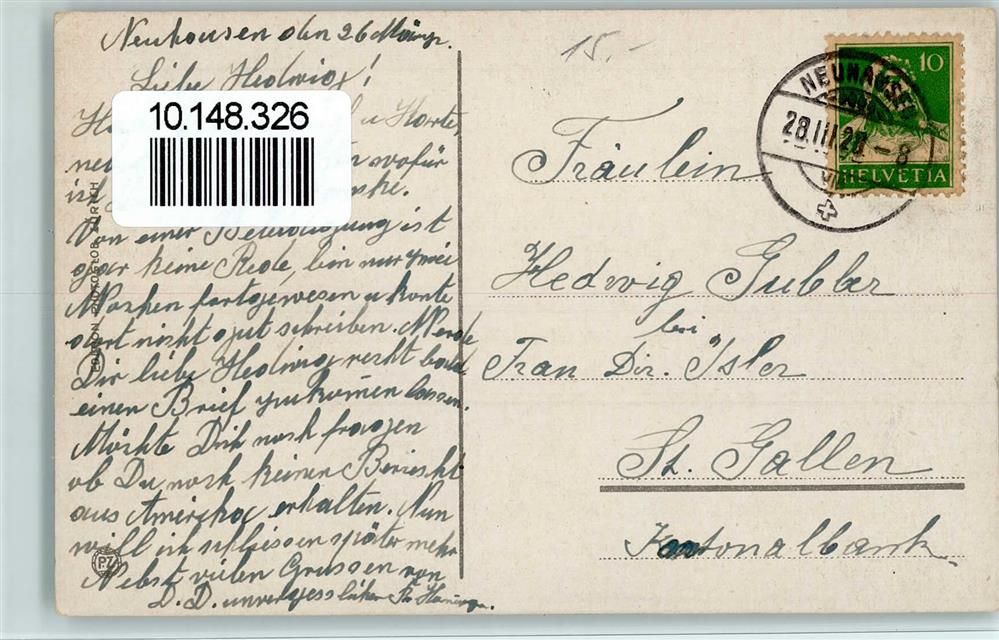 Neuhausen den 26 März.
15.-
Liebe Hedwig!
u Karte,
wofür
ich
Von einer Beleidigung ist
gar keine Rede, bin nur zwei
Wochen fortgewesen u konte
dort nicht gut schreiben. Werde
Dir liebe Hedwig recht bald
einen Brief zukom̄en lassen.
Möchte Dich noch fragen
ob Du noch keinen Bericht
aus Amerika erhalten. Nun
will ich schliessen später mehr
Nebst vielen Grüssen von
D. D. unvergesslichen
10.148.326
EDITION PHOTOGLOB ZÜRICH
PZ
NEUHAUSEN
28.III.2
-8
10
HELVETIA
Fräulein
Hedwig Gubler
bei
Frau Dir. Isler
St. Gallen
Kantonalbank